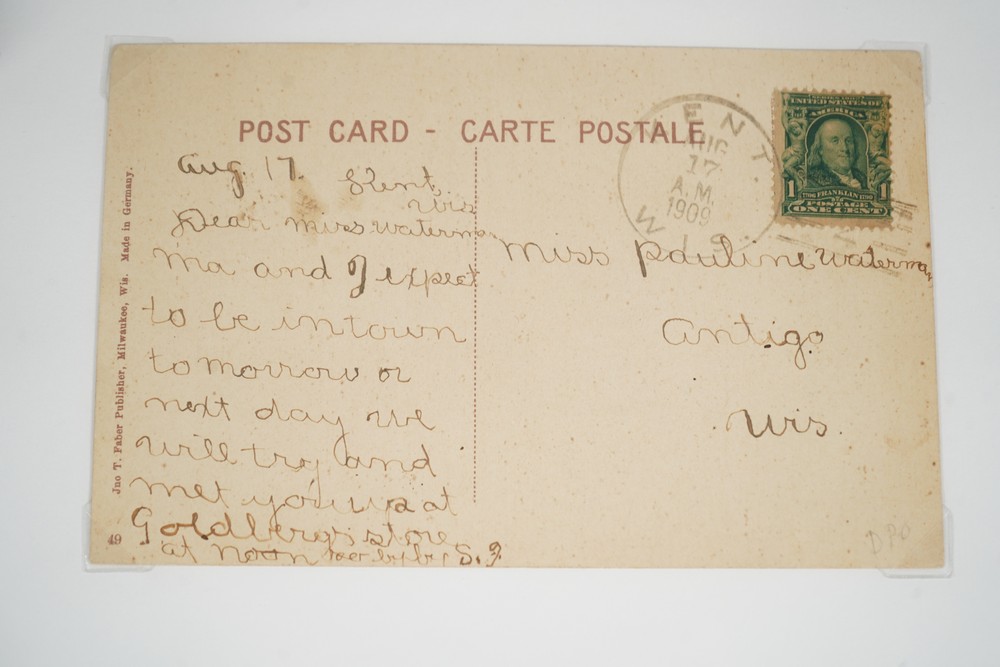 POST CARD - CARTE POSTALE
Aug. 17. Kent,
Wis
Dear miss waterman
ma and I expect
to be in town
tomorrow or
next day we
will try and
met you at
Goldbergs store
at noon S. J.
Miss Pauline Waterman
Antigo
Wis.
KENT.
AUG
17
A.M.
1909
WIS.
SERIES 1902
UNITED STATES OF
AMERICA
1 FRANKLIN 1
POSTAGE
ONE CENT
Jno T. Faber Publisher, Milwaukee, Wis. Made in Germany.
DPO